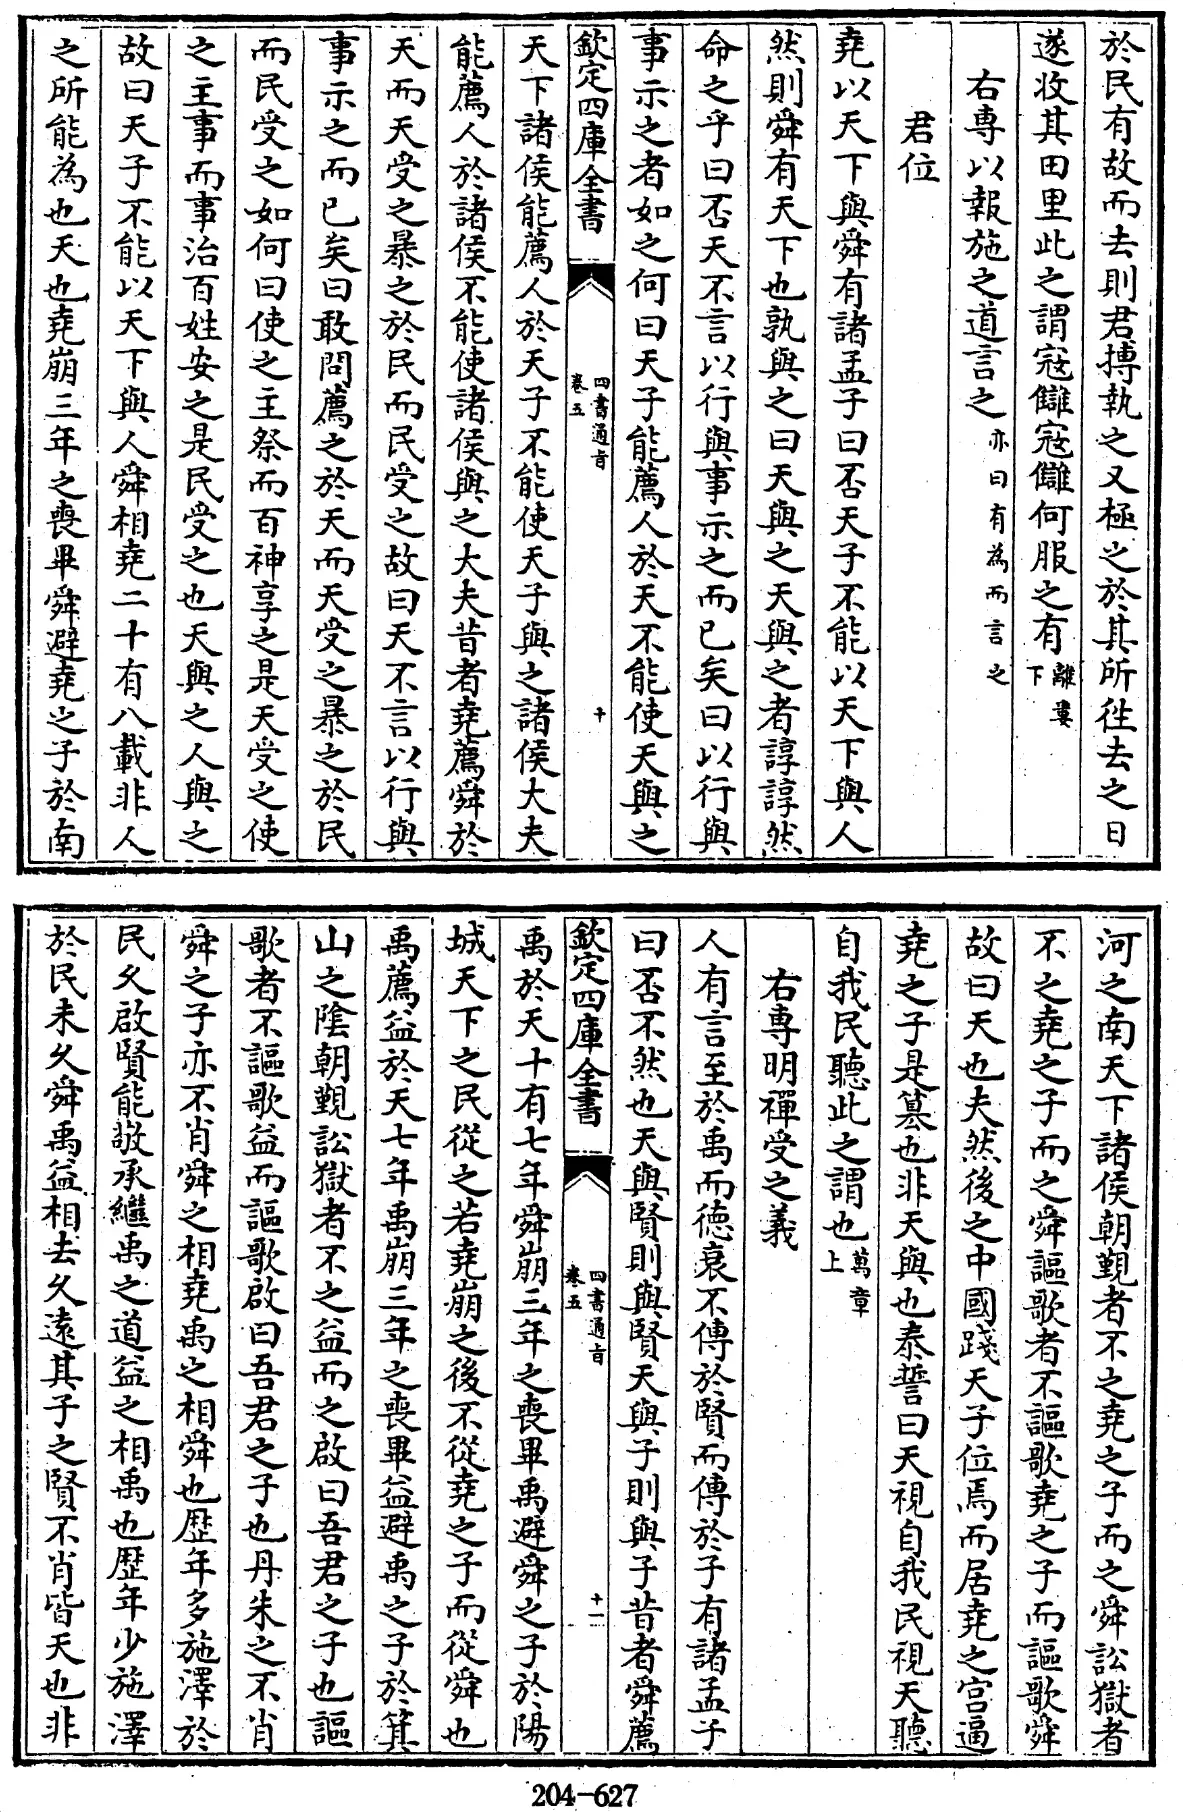 於民有故而去則君搏執之又極之於其所往去之日
遂收其田里此之謂宼讎宼讎何服之有離婁下
右專以報施之道言之亦曰有為而言之
君位
堯以天下與舜有諸孟子曰否天子不能以天下與人
然則舜有天下也孰與之曰天與之天與之者諄諄然
命之乎曰否天不言以行與事示之而已矣曰以行與
事示之者如之何曰天子能薦人於天不能使天與之
欽定四庫全書
四書通旨
卷五
十
天下諸侯能薦人於天子不能使天子與之諸侯大夫
能薦人於諸侯不能使諸侯與之大夫昔者堯薦舜於
天而天受之暴之於民而民受之故曰天不言以行與
事示之而已矣曰敢問薦之於天而天受之暴之於民
而民受之如何曰使之主祭而百神享之是天受之使
之主事而事治百姓安之是民受之也天與之人與之
故曰天子不能以天下與人舜相堯二十有八載非人
之所能為也天也堯崩三年之喪畢舜避堯之子於南
河之南天下諸侯朝覲者不之堯之子而之舜訟獄者
不之堯之子而之舜謳歌者不謳歌堯之子而謳歌舜
故曰天也夫然後之中國踐天子位焉而居堯之宫逼
堯之子是篡也非天與也泰誓曰天視自我民視天聽
自我民聽此之謂也萬章上
右專明禪受之義
人有言至於禹而德衰不傳於賢而傳於子有諸孟子
曰否不然也天與賢則與賢天與子則與子昔者舜薦
欽定四庫全書
四書通旨
卷五
十一
禹於天十有七年舜崩三年之喪畢禹避舜之子於陽
城天下之民從之若堯崩之後不從堯之子而從舜也
禹薦益於天七年禹崩三年之喪畢益避禹之子於箕
山之隂朝覲訟獄者不之益而之啟曰吾君之子也謳
歌者不謳歌益而謳歌啟曰吾君之子也丹朱之不肖
舜之子亦不肖舜之相堯禹之相舜也歴年多施澤於
民久啟賢能敬承繼禹之道益之相禹也歴年少施澤
於民未久舜禹益相去久逺其子之賢不肖皆天也非
204-627